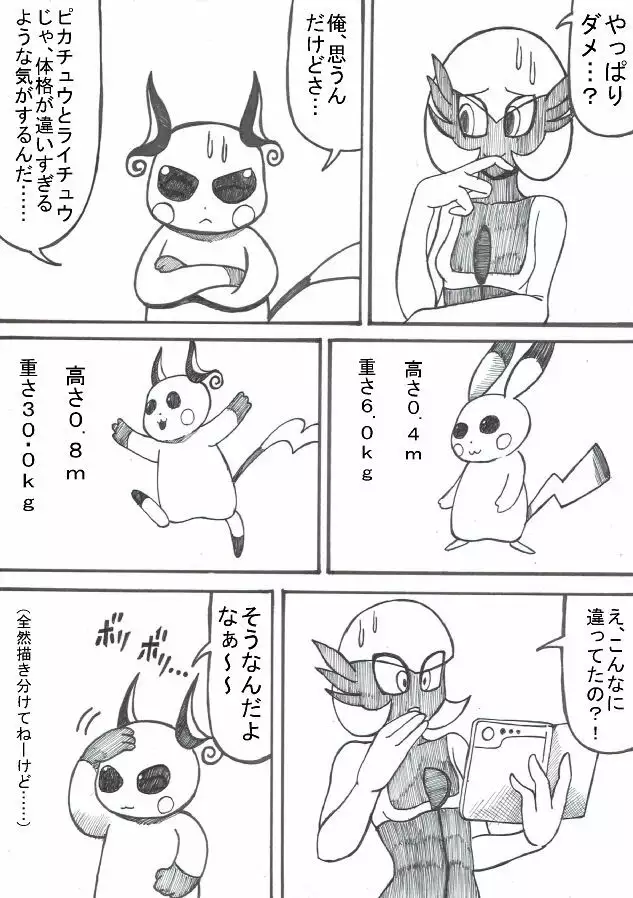 やっぱり
ダメ…？
俺、思うん
だけどさ…
ピカチュウとライチュウ
じゃ、体格が違いすぎる
ような気がするんだ……
高さ0.4m
重さ6.0kg
高さ0.8m
重さ30.0kg
え、こんなに
違ってたの？！
そうなんだよ
なぁ～～
ボリボリ…
（全然描き分けてねーけど……）